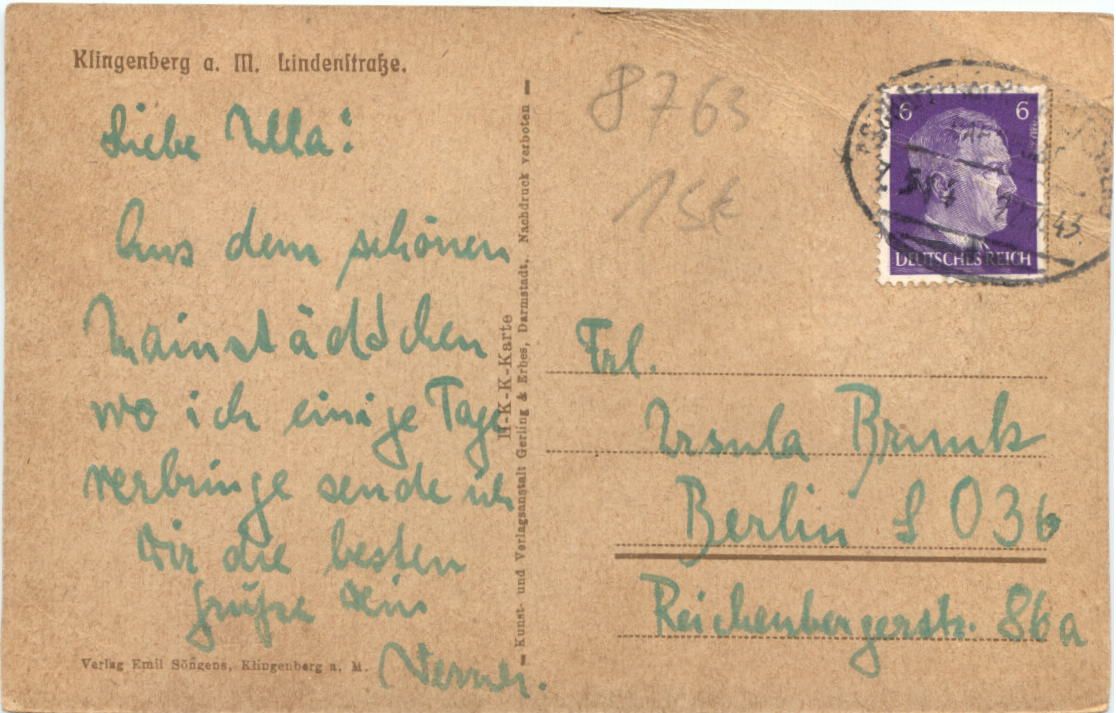 Klingenberg a. M. Lindenstraße.
Liebe Ulla!
Aus dem schönen
Mainstädtchen
wo ich einige Tage
verbringe sende ich
Dir die besten
Grüße Dein
Werner.
Verlag Emil Söngens, Klingenberg a. M.
H-K-K-Karte
Kunst- und Verlagsanstalt Gerling & Erbes, Darmstadt, Nachdruck verboten
8763
15€
6 6
DEUTSCHES REICH
43
Frl.
Ursula Brunk
Berlin S O 36
Reichenbergerstr. 86a